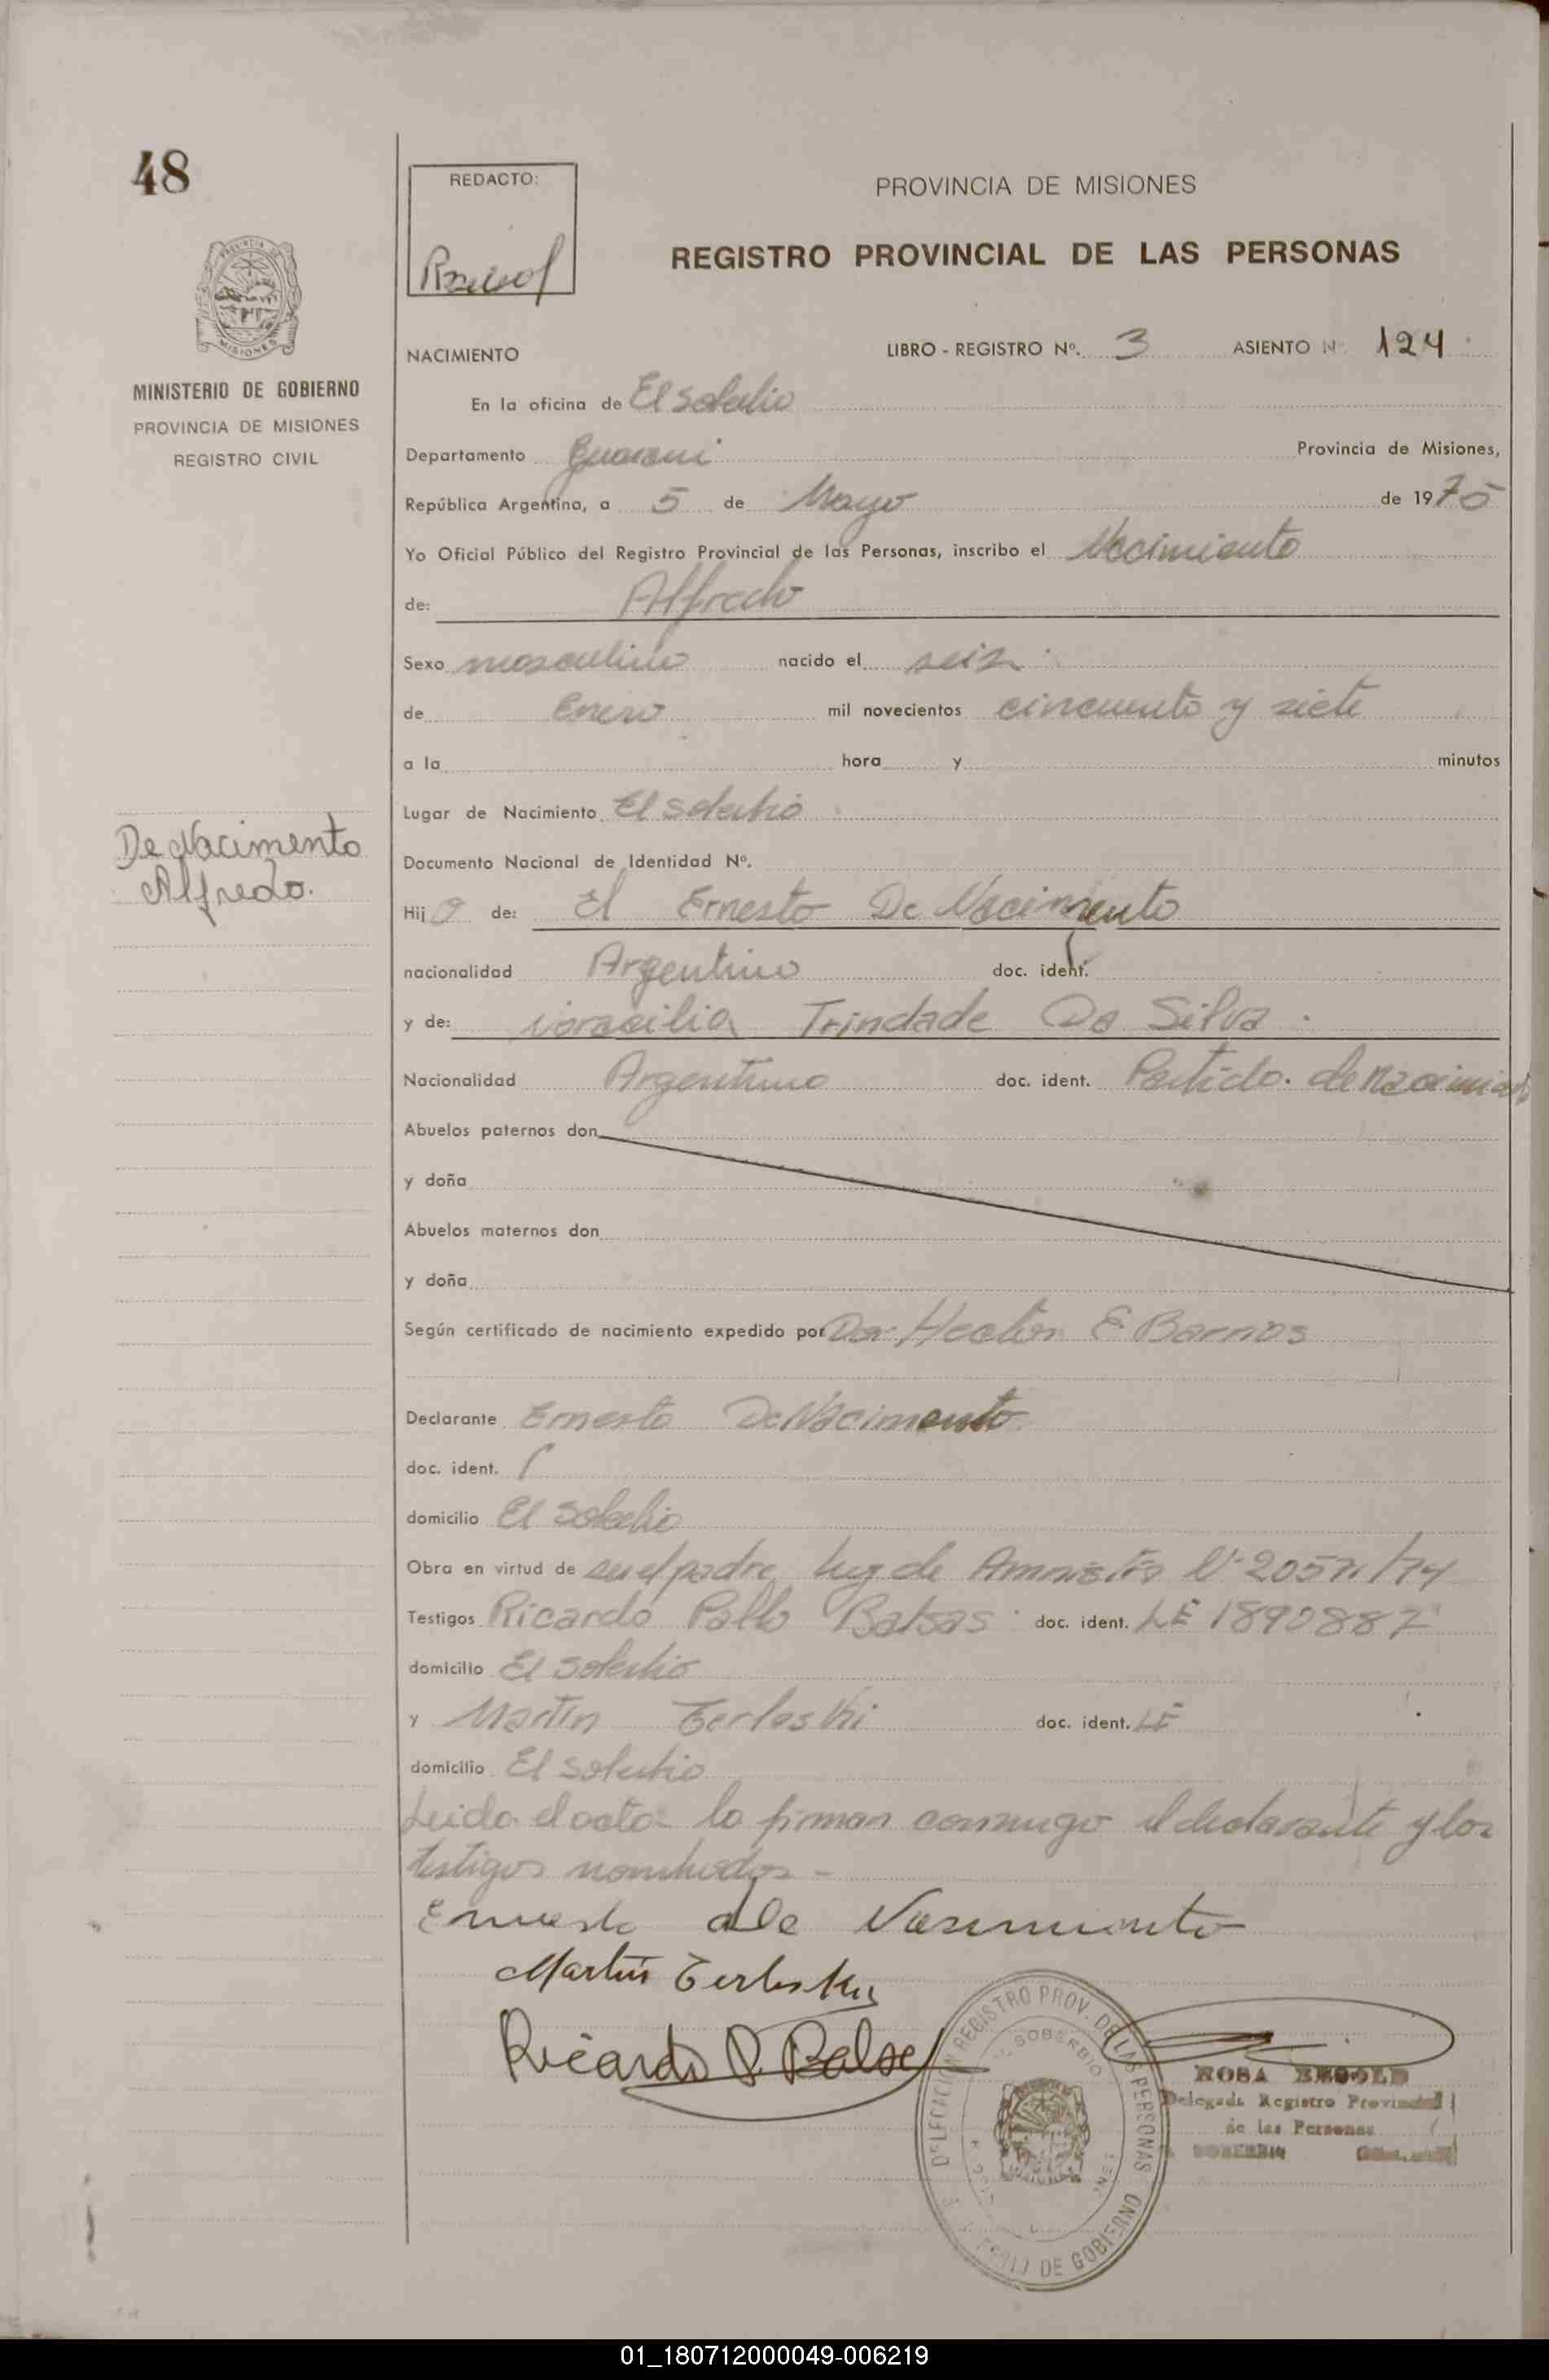 48
REDACTO:
PROVINCIA DE MISIONES
REGISTRO PROVINCIAL DE LAS PERSONAS
MISIONES
MINISTERIO DE GOBIERNO
PROVINCIA DE MISIONES
REGISTRO CIVIL
NACIMIENTO
LIBRO - REGISTRO Nº. 3 ASIENTO Nº. 124
En la oficina de El Soberbio
Departamento Guarani Provincia de Misiones,
República Argentina, a 5 de Mayo de 1975
Yo Oficial Público del Registro Provincial de las Personas, inscribo el Nacimiento
de: Alfredo
Sexo masculino nacido el seis
de Enero mil novecientos cincuenta y siete
a la hora y minutos
Lugar de Nacimiento El Soberbio
De Nacimento
Alfredo.
Documento Nacional de Identidad Nº.
Hijo de: El Ernesto De Nacimento
nacionalidad Argentino doc. ident.
y de: Trindade Da Silva
Nacionalidad Argentino doc. ident. Partida de nacimiento
Abuelos paternos don
y doña
Abuelos maternos don
y doña
Según certificado de nacimiento expedido por Dor Hector E Barrios
Declarante Ernesto De Nacimento
doc. ident.
domicilio El Soberbio
Obra en virtud de ser el padre Ley de Amnistia Nº 20521/74
Testigos Ricardo Pablo Balsas doc. ident. LE 1890887
domicilio El Soberbio
y Martin Terleski doc. ident. LE
domicilio El Soberbio
Leida el acta la firman conmigo el declarante y los
testigos nombrados -
Ernesto de Nasimento
Martin Terleski
Ricardo P. Balsa
DELEGACION REGISTRO PROV. DE LAS PERSONAS
SOBERBIO
DE GOBIERNO
ROSA
Delegada Registro Provincial
de las Personas
SOBERBIO
01_180712000049-006219